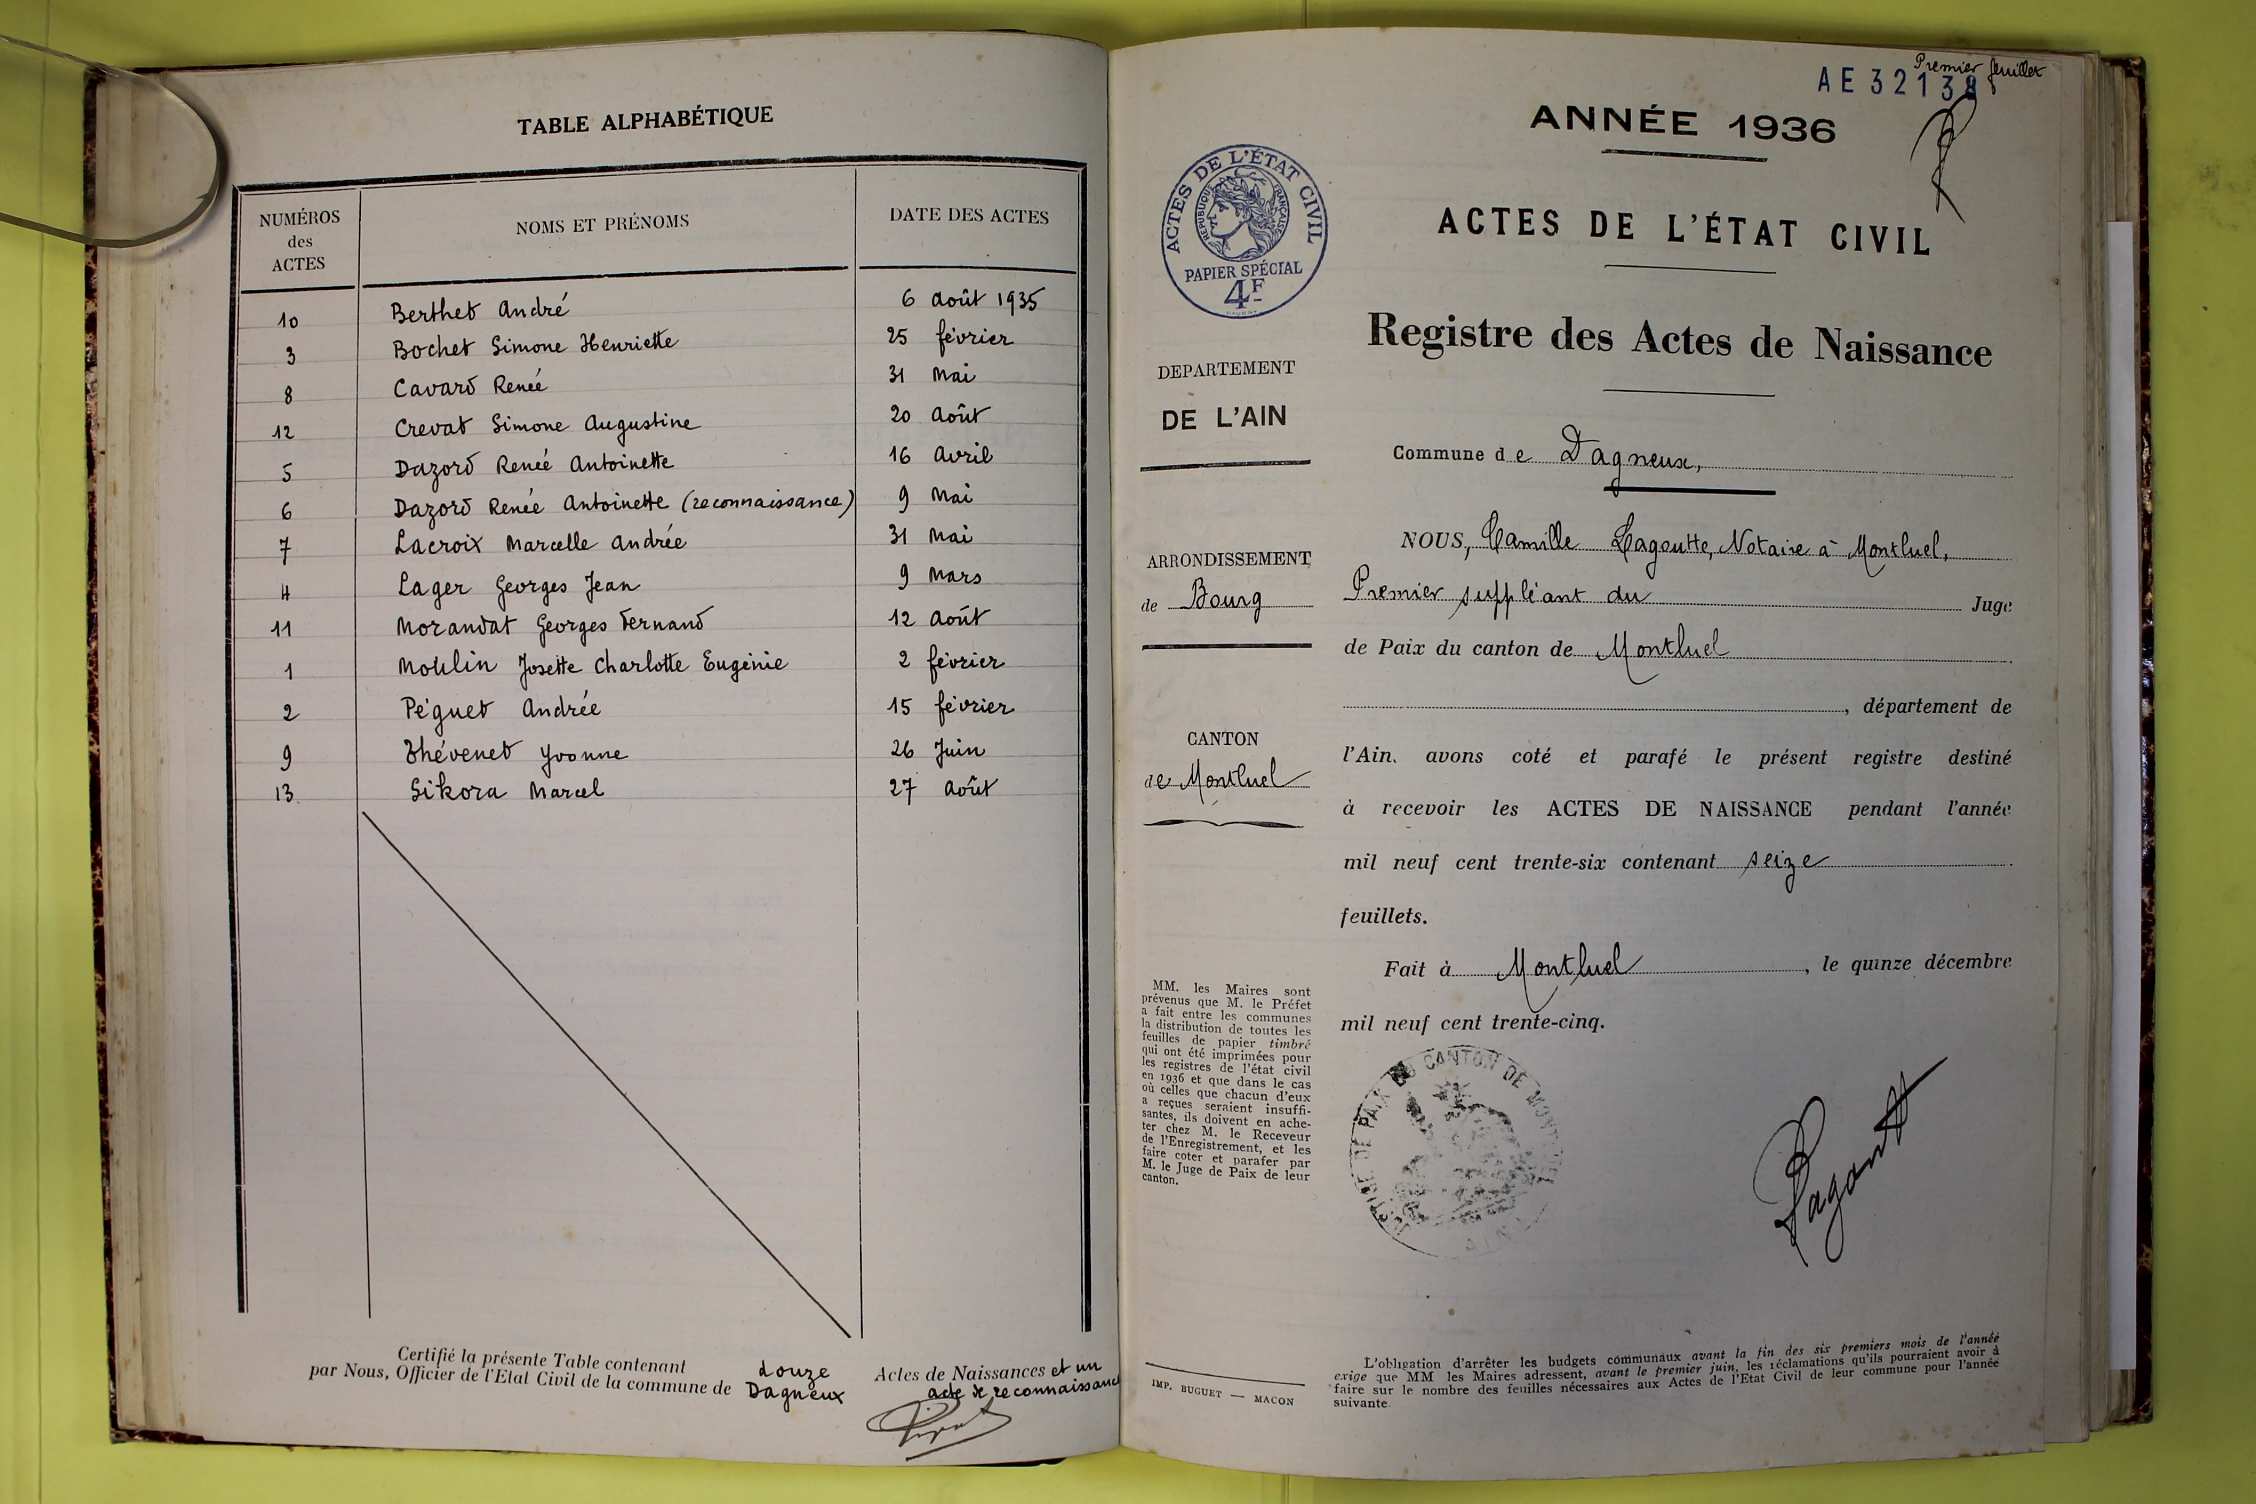 TABLE ALPHABÉTIQUE
NUMÉROS des ACTES NOMS ET PRÉNOMS DATE DES ACTES
10 Berthet André 6 août 1935
3 Bochet Simone Henriette 25 février
8 Cavard Renée 31 Mai
12 Crevat Simone Augustine 20 Août
5 Dazord Renée Antoinette 16 Avril
6 Dazord Renée Antoinette (reconnaissance) 9 Mai
7 Lacroix Marcelle Andrée 31 Mai
4 Lager Georges Jean 9 Mars
11 Morandat Georges Fernand 12 Août
1 Moulin Josette Charlotte Eugénie 2 février
2 Péguet Andrée 15 février
9 Thévenet Yvonne 26 Juin
13 Sikora Marcel 27 Août
Certifié la présente Table contenant douze Actes de Naissances et un
acte de reconnaissance
par Nous, Officier de l'Etat Civil de la commune de Dagneux
Premier feuillet
ANNÉE 1936
ACTES DE L'ÉTAT CIVIL
RÉPUBLIQUE FRANÇAISE
PAPIER SPÉCIAL
4F
ACTES DE L'ÉTAT CIVIL
Registre des Actes de Naissance
DEPARTEMENT
DE L'AIN
Commune de Dagneux,
ARRONDISSEMENT
de Bourg
CANTON
de Montluel
NOUS, Camille Lagoutte, Notaire à Montluel,
Premier suppléant du Juge
de Paix du canton de Montluel
, département de
l'Ain, avons coté et parafé le présent registre destiné
à recevoir les ACTES DE NAISSANCE pendant l'année
mil neuf cent trente-six contenant seize
feuillets.
Fait à Montluel, le quinze décembre
mil neuf cent trente-cinq.
MM. les Maires sont
prévenus que M. le Préfet
a fait entre les communes
la distribution de toutes les
feuilles de papier timbré
qui ont été imprimées pour
les registres de l'état civil
en 1936 et que dans le cas
où celles que chacun d'eux
a reçues seraient insuffi-
santes, ils doivent en ache-
ter chez M. le Receveur
de l'Enregistrement, et les
faire coter et parafer par
M. le Juge de Paix de leur
canton.
DE PAIX DU CANTON DE
Lagoutte
IMP. BUGUET — MACON
L'obligation d'arrêter les budgets communaux avant la fin des six premiers mois de l'année
exige que MM les Maires adressent, avant le premier juin, les réclamations qu'ils pourraient avoir à
faire sur le nombre des feuilles nécessaires aux Actes de l'Etat Civil de leur commune pour l'année
suivante.